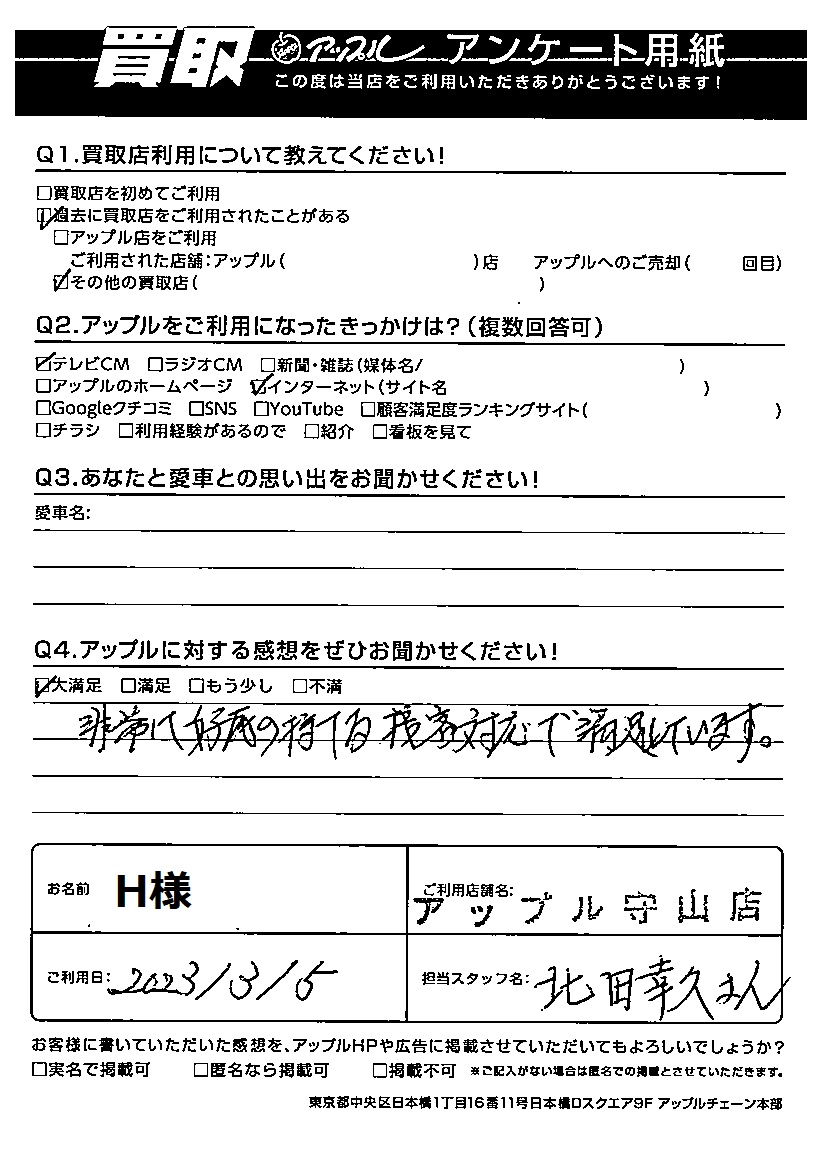 買取 アップル アンケート用紙
この度は当店をご利用いただきありがとうございます！
Q1.買取店利用について教えてください！
□買取店を初めてご利用
☑過去に買取店をご利用されたことがある
□アップル店をご利用
ご利用された店舗：アップル( )店 アップルへのご売却( 回目)
☑その他の買取店( )
Q2.アップルをご利用になったきっかけは？(複数回答可)
☑テレビCM □ラジオCM □新聞・雑誌(媒体名/ )
□アップルのホームページ ☑インターネット(サイト名 )
□Googleクチコミ □SNS □YouTube □顧客満足度ランキングサイト( )
□チラシ □利用経験があるので □紹介 □看板を見て
Q3.あなたと愛車との思い出をお聞かせください！
愛車名：
Q4.アップルに対する感想をぜひお聞かせください！
☑大満足 □満足 □もう少し □不満
非常に好感の持てる接客対応で満足しています。
お名前 H様
ご利用店舗名：
アップル守山店
ご利用日：2023/3/5
担当スタッフ名：北田幸久さん
お客様に書いていただいた感想を、アップルHPや広告に掲載させていただいてもよろしいでしょうか？
□実名で掲載可 □匿名なら掲載可 □掲載不可 ※ご記入がない場合は匿名での掲載とさせていただきます。
東京都中央区日本橋1丁目16番11号日本橋Dスクエア9F アップルチェーン本部